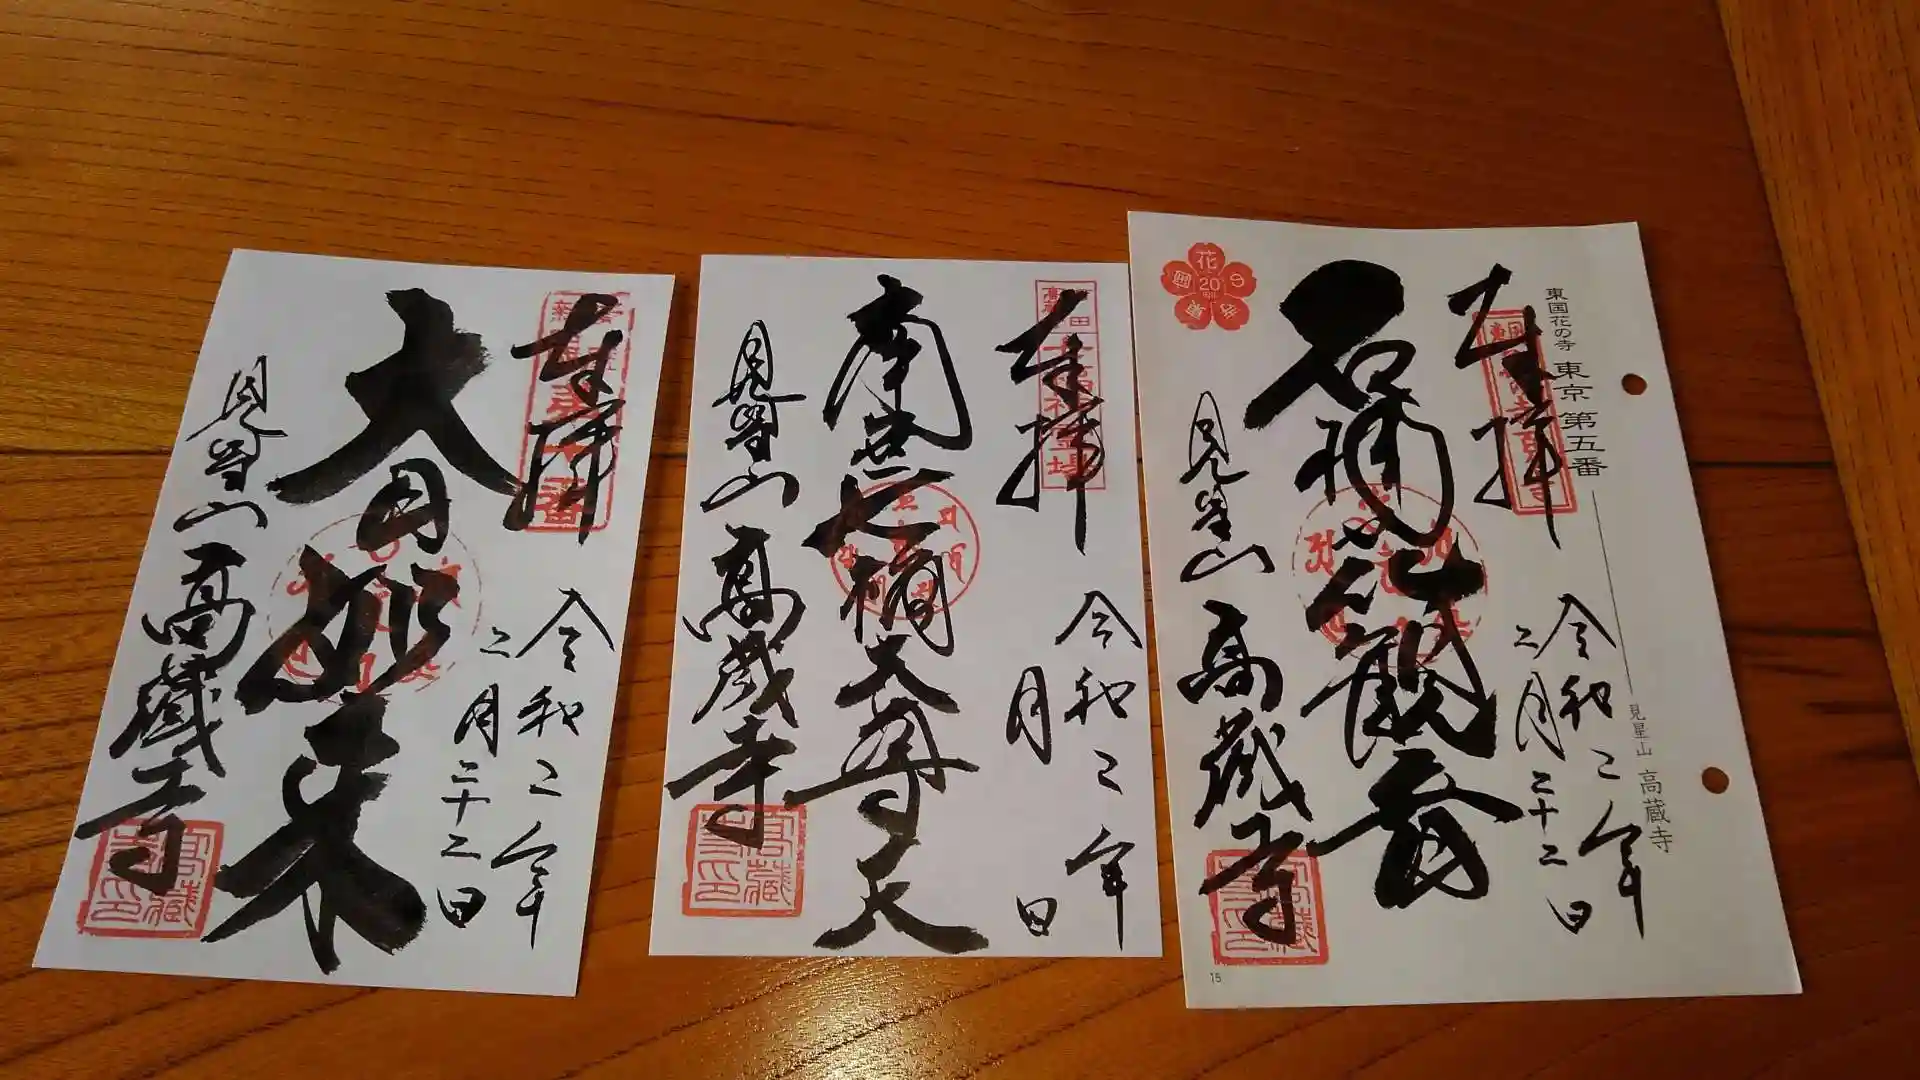 奉拝
令和二年
二月二十二日
大日如来
見星山
高蔵寺
奉拝
令和二年
月 日
南無七福大尊天
見星山
高蔵寺
東国花の寺 東京 第五番
見星山 高蔵寺
奉拝
令和二年
二月二十二日
石楠花観音
見星山
高蔵寺
花
20
15